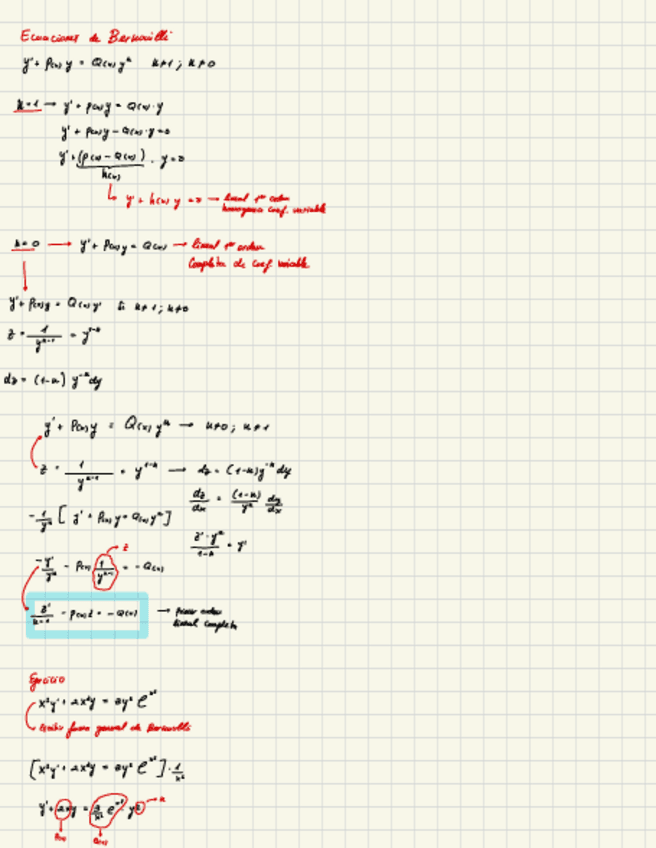 Ecuaciones de Bernouilli
y' + P(x) y = Q(x) y^n   n≠1 ; n≠0
n=1 → y' + p(x)y = Q(x)·y
y' + p(x)y - Q(x)·y = 0
y' + (p(x) - Q(x)) · y = 0
h(x)
↳ y' + h(x) y = 0 → lineal 1er orden
homogenea coef. variable
n=0 → y' + P(x)y = Q(x) → lineal 1er orden
Completa de coef. variable
y' + P(x)y = Q(x)y^n   Si n≠1 ; n≠0
z = 1/y^(n-1) = y^(1-n)
dz = (1-n) y^-n dy
y' + P(x)y = Q(x) y^n → n≠0 ; n≠1
z = 1/y^(n-1) = y^(1-n) → dz = (1-n)y^-n dy
dz/dx = (1-n)/y^n dy/dx
-1/y^n [ y' + P(x)y = Q(x)y^n ]
z'·y^n/(1-n) = y'
z
-y'/y^n - P(x) 1/y^(n-1) = -Q(x)
z'/(n-1) - p(x)z = -Q(x) → primer orden
lineal completa
Ejercicio
x²y' + 2x³y = 3y² e^x²
forma general de Bernouilli
[x²y' + 2x³y = 3y² e^x²] · 1/x²
y' + 2xy = 3/x² e^x² y² → n
P(x)   Q(x)